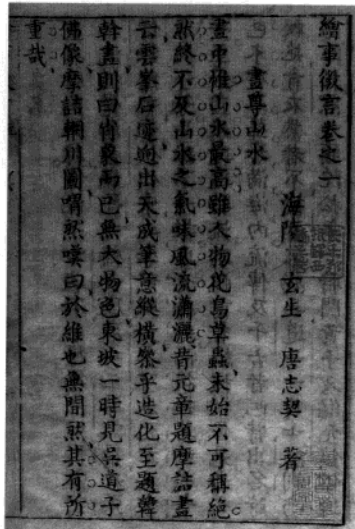 繪事微言卷之一
海陵玄生 唐志契 著
畫尊山水
畫中惟山水最高雖人物花鳥草蟲未始不可稱絕
然終不及山水之氣味風流瀟灑昔元章題摩詰畫
云雲峯石迹迥出天成筆意縱橫參乎造化至題韓
幹畫則曰肖象而已無大物色東坡一時見吳道子
佛像摩詰輞川圖喟然嘆曰於維也無間然其有所
重哉